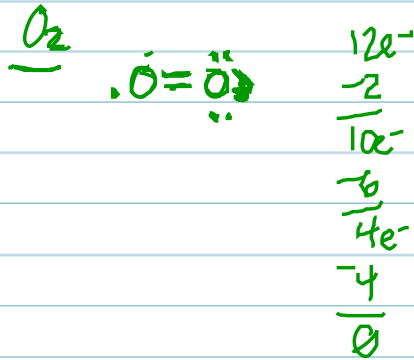 O₂
·Ö=Ö:
12e⁻
-2
10e⁻
-6
4e⁻
-4
0